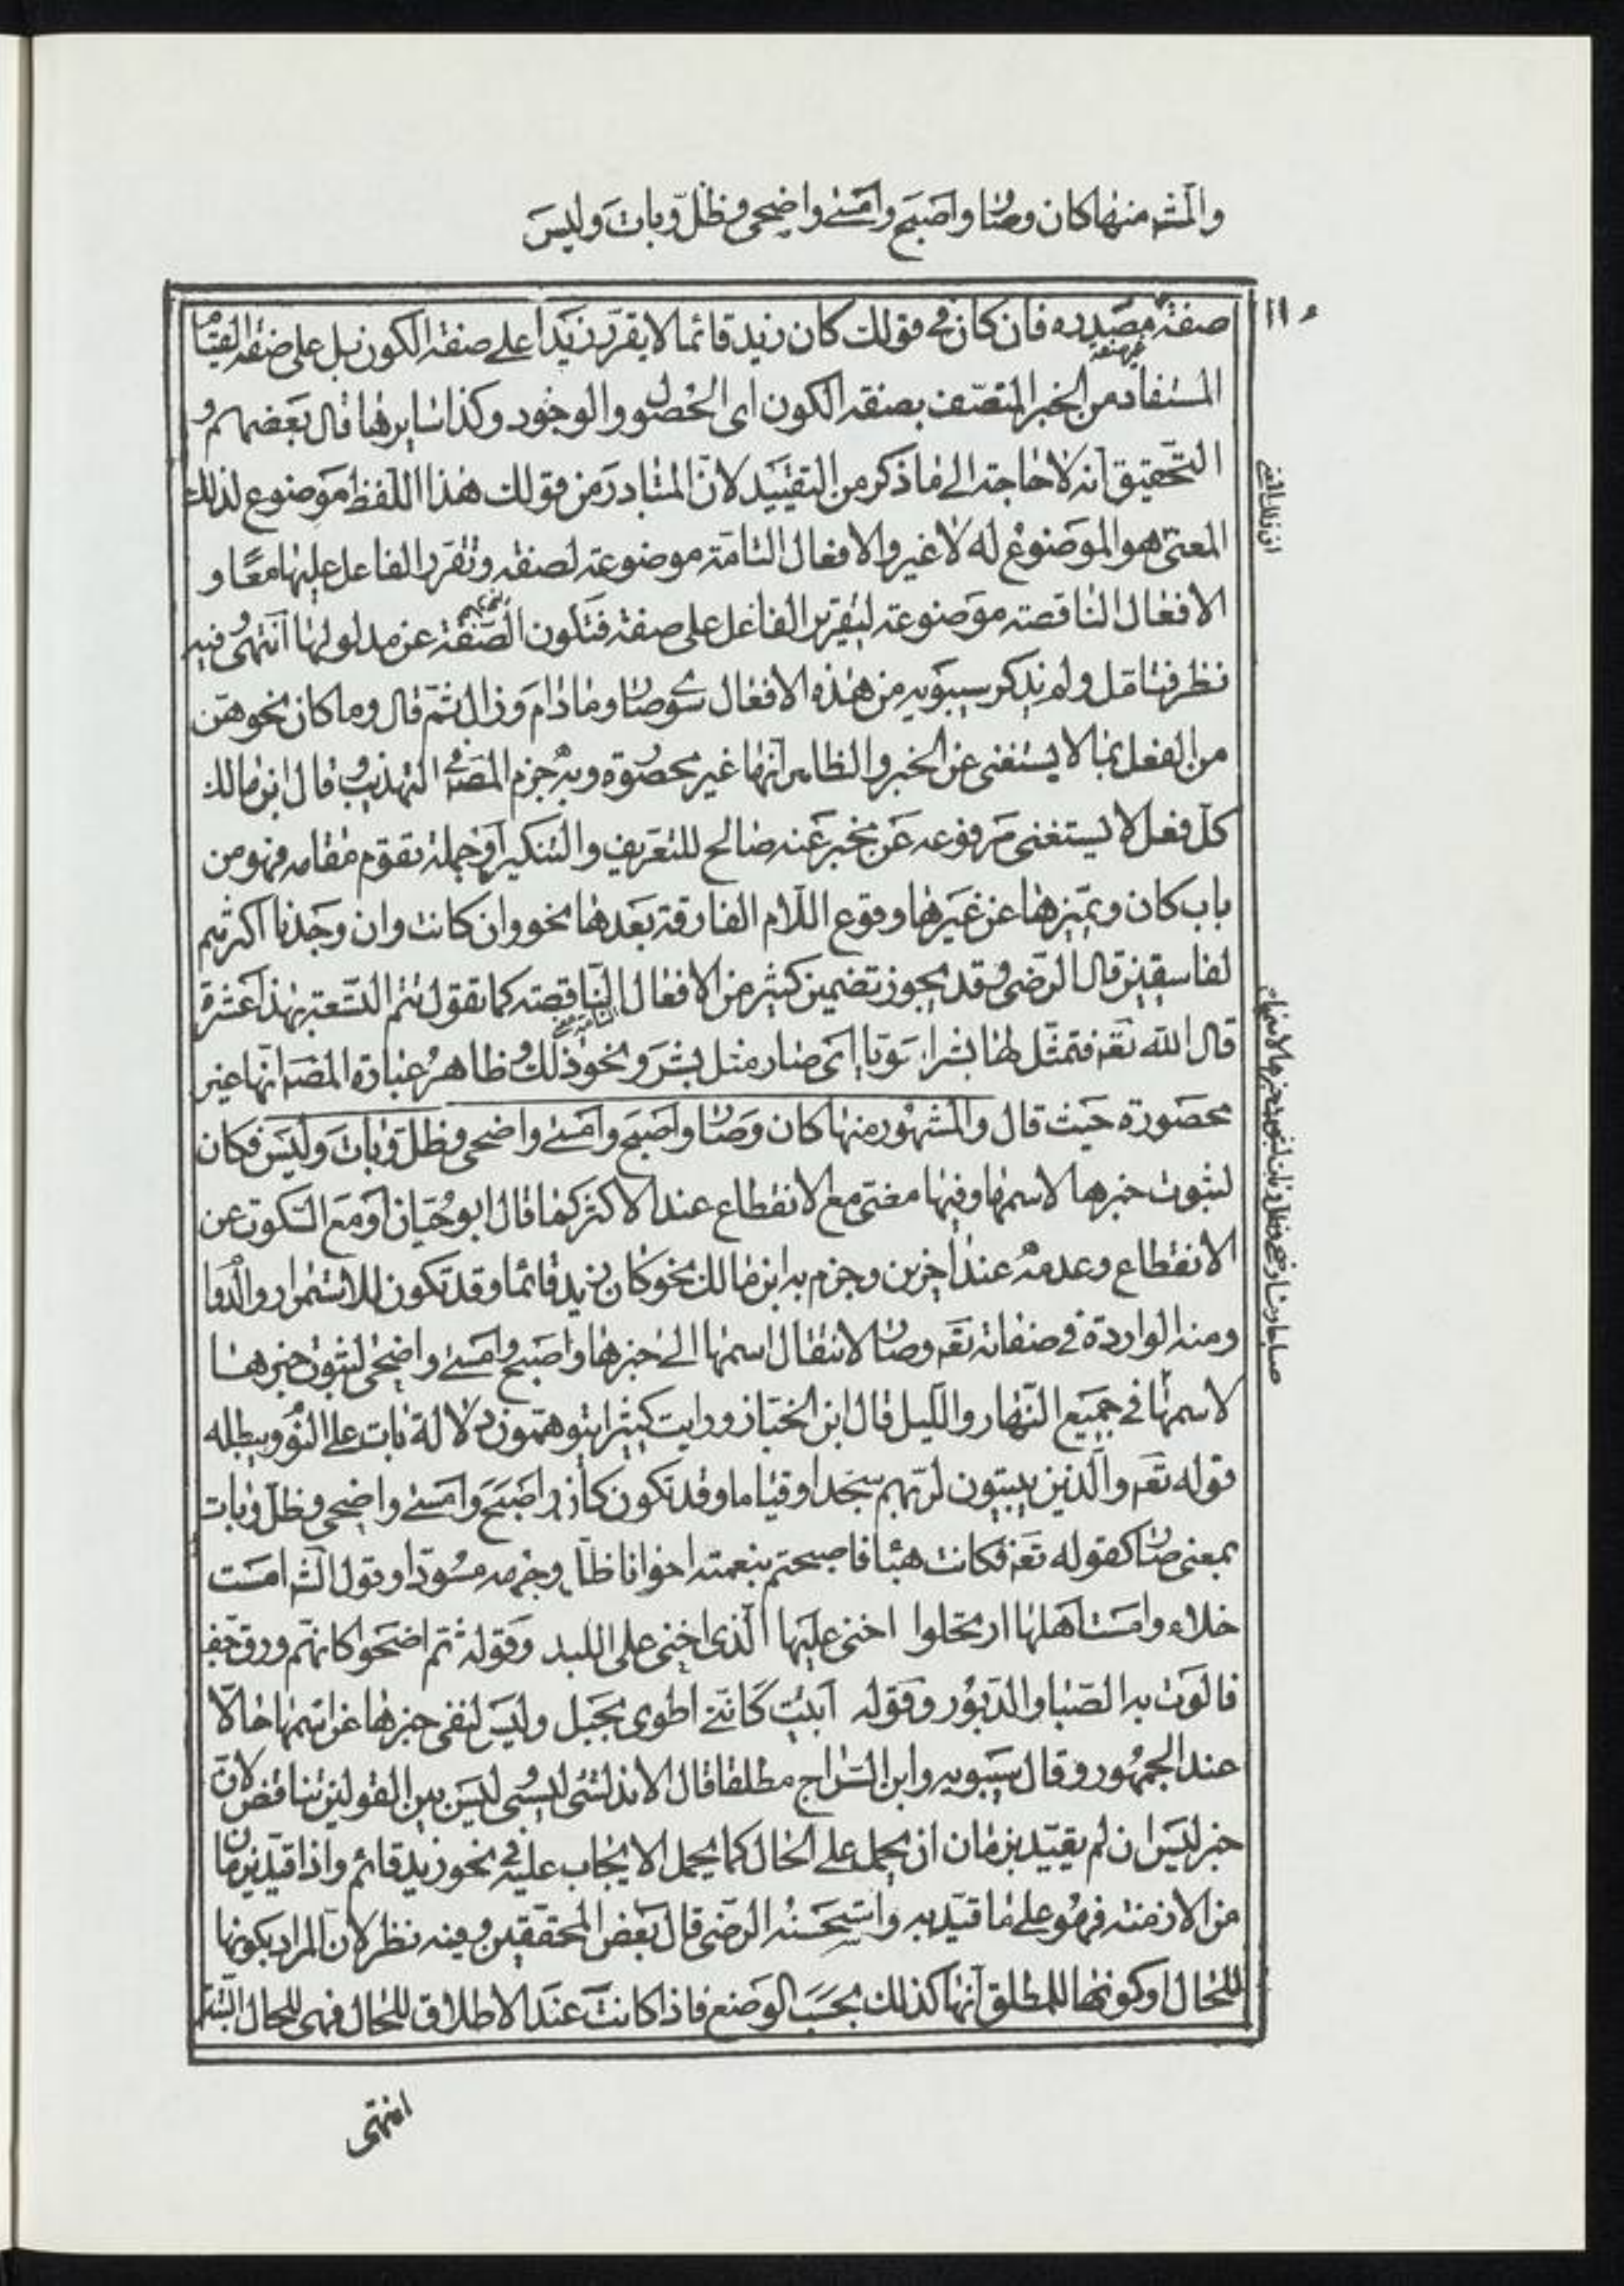 والمشه منها كان وصار واصبح وامسى واضحى وظلّ وبات وليس
صفة مصدره فان كان في قولك كان زيد قائما لا يقرّر زيدا على صفة الكون بل على صفة القيام
المستفاد من الخبر المتصف بصفة الكون اى الحصول والوجود وكذا سايرها قال بعضهم و
التحقيق انه لا حاجة الى ما ذكر من التقييد لان المتبادر من قولك هذا اللفظ موضوع لذلك
المعنى هو الموضوع له لا غير والافعال التامة موضوعة لصفة وتقرر الفاعل عليها معًا و
الافعال الناقصة موضوعة لتقرير الفاعل على صفة فتكون الصفة عن مدلولها انتهى وفيه
نظر فتامّل ولم يذكر سيبويه من هذه الافعال سوى كان وصار ومادام وزال ثم قال وما كان نحوهن
من الفعل مما لا يستغنى عن الخبر والظاهر انها غير محصورة وبه جزم المصه في التهذيب وقال ابن مالك
كل فعل لا يستغنى مرفوعه عن مخبر عنه صالح للتعريف والتنكير او جملة تقوم مقامه فهو من
باب كان ويميزها عن غيرها وقوع اللام الفارقة بعدها نحو وان كانت وان وجدنا اكثرهم
لفاسقين قال الرضى وقد يجوز تضمين كثير من الافعال الناقصة كما تقول تتم التسعة بهذا عشرة
قال الله تعه فتمثّل لها بشرا سويا اى صار مثل بشر ونحو ذلك وظاهر عبارة المصه انها غير
محصورة حيث قال والمشهور منها كان وصار واصبح وامسى واضحى وظلّ وبات وليس فكان
لثبوت خبرها لاسمها وفيها مضى مع الانقطاع عند الاكثر كما قال ابو حيان او مع السكوت عن
الانقطاع وعدمه عند اخرين وجزم به ابن مالك نحو كان زيد قائما وقد تكون للاستمرار والدوام
ومنه الواردة في صفاته تعه وصار لانتقال اسمها الى خبرها واصبح وامسى واضحى لثبوت خبرها
لاسمها في جميع النهار والليل قال ابن الخباز ورايت كثيرا يتوهمون دلالة بات على النوم ويبطله
قوله تعه والذين يبيتون لربهم سجدا وقياما وقد تكون كان واصبح وامسى واضحى وظلّ وبات
بمعنى صار كقوله تعه فكانت هبئا فاصبحتم بنعمته اخوانا ظل وجهه مسودّا وقول الشه امست
خلاء وامست اهلها ارتحلوا اخنى عليها الذى اخنى على اللبد وقوله ثم اضحوا كانهم ورق جف
فالوت به الصبا والدبور وقوله ابيت كانّنى اطوى بجبل وليس لنفى خبرها عن اسمها حالّا
عند الجمهور وقال سيبويه وابن السراج مطلقا قال الاندلسى ليس بين القولين تناقض لان
خبر ليس ان لم يقيّد بزمان ان يحمل على الحال كما يحمل الايجاب عليه في نحو زيد قائم واذا قيّد بزمان
من الازمنة فهو على ما قيّد به واستحسنه الرضى قال بعض المحققين وفيه نظر لان المراد بكونها
للحال او كونها للمطلق انها كذلك بحسب الوضع فاذا كانت عند الاطلاق للحال فهى للحال
انتهى